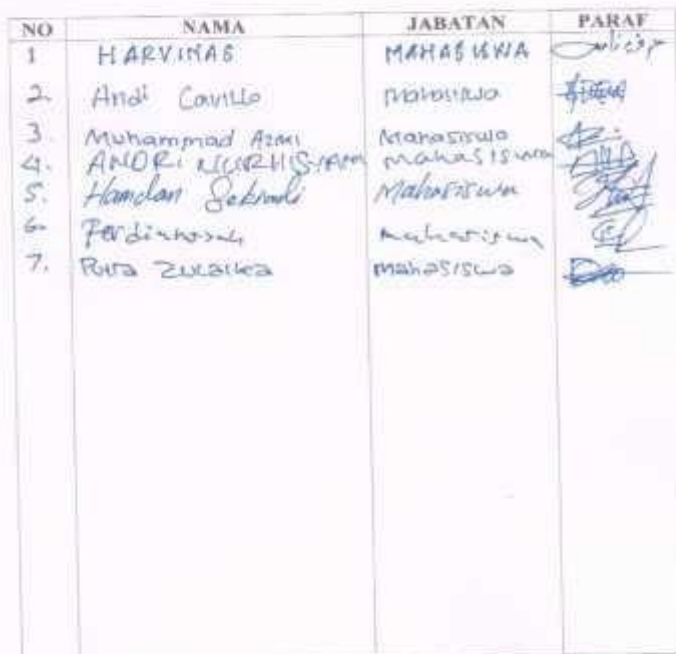 NO NAMA JABATAN PARAF
1 HARVINAS MAHASISWA
2. Andi Cavillo Mahasiswa
3. Muhammad Azmi Mahasiswa
4. ANDRI NURHISYAM mahasiswa
5. Hamdan Mahasiswa
6. mahasiswa
7. Putra Zulaika mahasiswa